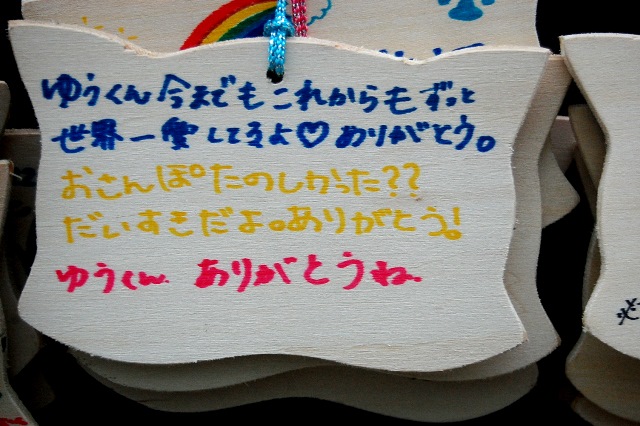 ゆうくん今までもこれからもずっと
世界一愛してるよ♡ありがとう。
おさんぽたのしかった??
だいすきだよ。ありがとう!
ゆうくん ありがとうね。